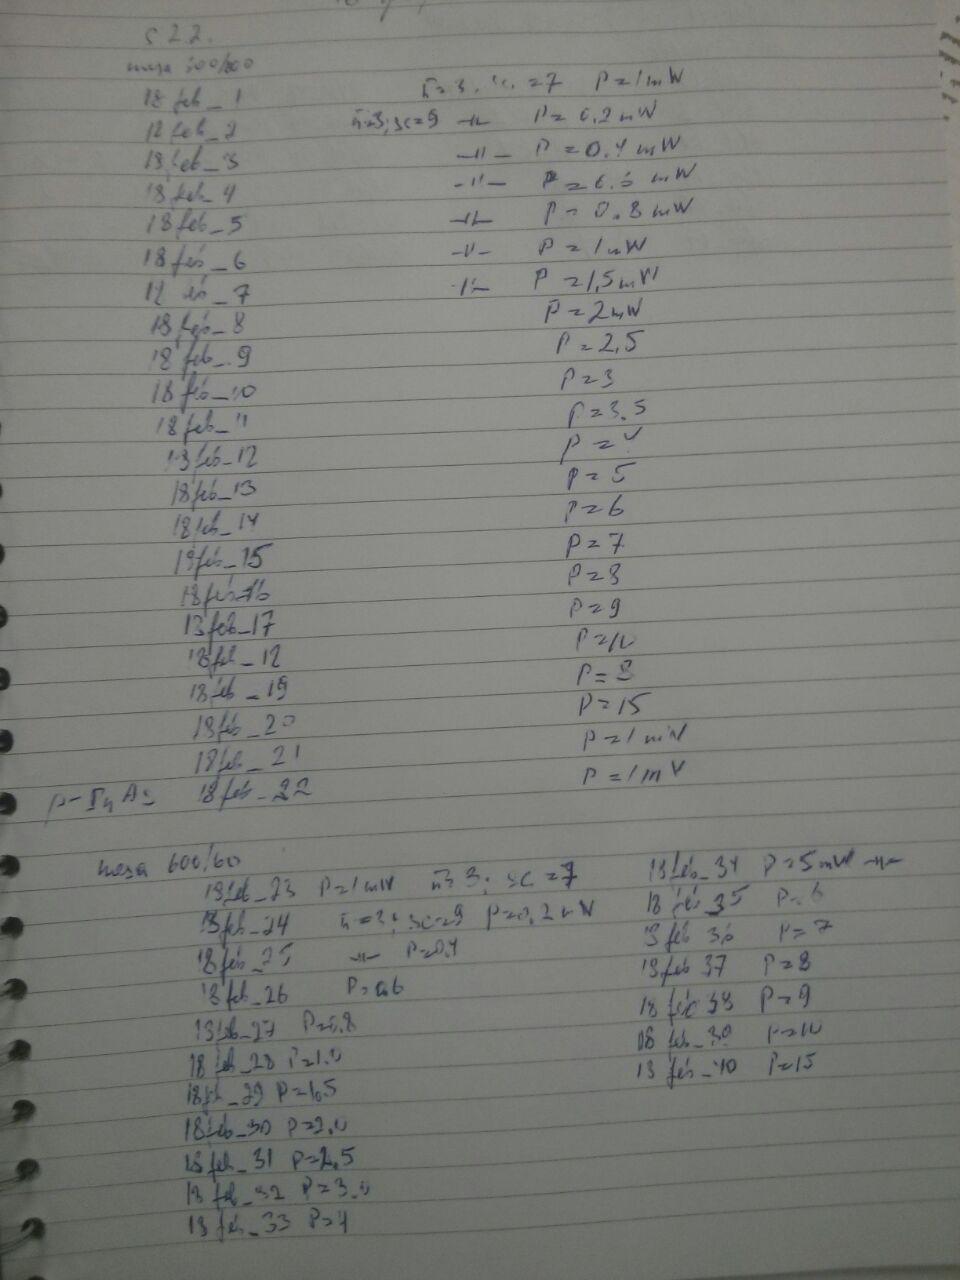 c 22.
поза 300/300
18 feb_1 n=3; sc=7 P=1mW
18 feb_2 n=3; sc=9 -"- P=0.2mW
18 feb_3 -"- P=0.4mW
18 feb_4 -"- P=0.6mW
18 feb_5 -"- P=0.8mW
18 feb_6 -"- P=1mW
18 feb_7 -"- P=1,5mW
18 feb_8 P=2mW
18 feb_9 P=2,5
18 feb_10 P=3
18 feb_11 P=3.5
18 feb_12 P=4
18 feb_13 P=5
18 feb_14 P=6
18 feb_15 P=7
18 feb_16 P=8
18 feb_17 P=9
18 feb_18 P=10
18 feb_19 P=8
18 feb_20 P=15
18 feb_21 P=1mW
18 feb_22 P=1mW
600/60
18 feb_23 P=1mW n=3; sc=7
18 feb_24 n=3; sc=9 P=0,2mW
18 feb_25 -"- P=0,4
18 feb_26 P=0,6
18 feb_27 P=0.8
18 feb_28 P=1.0
18 feb_29 P=1,5
18 feb_30 P=2.0
18 feb_31 P=2,5
18 feb_32 P=3.0
18 feb_33 P=4
18 feb_34 P=5mW -"-
18 feb_35 P=6
18 feb 36 P=7
18 feb 37 P=8
18 feb 38 P=9
18 feb_39 P=10
18 feb_40 P=15